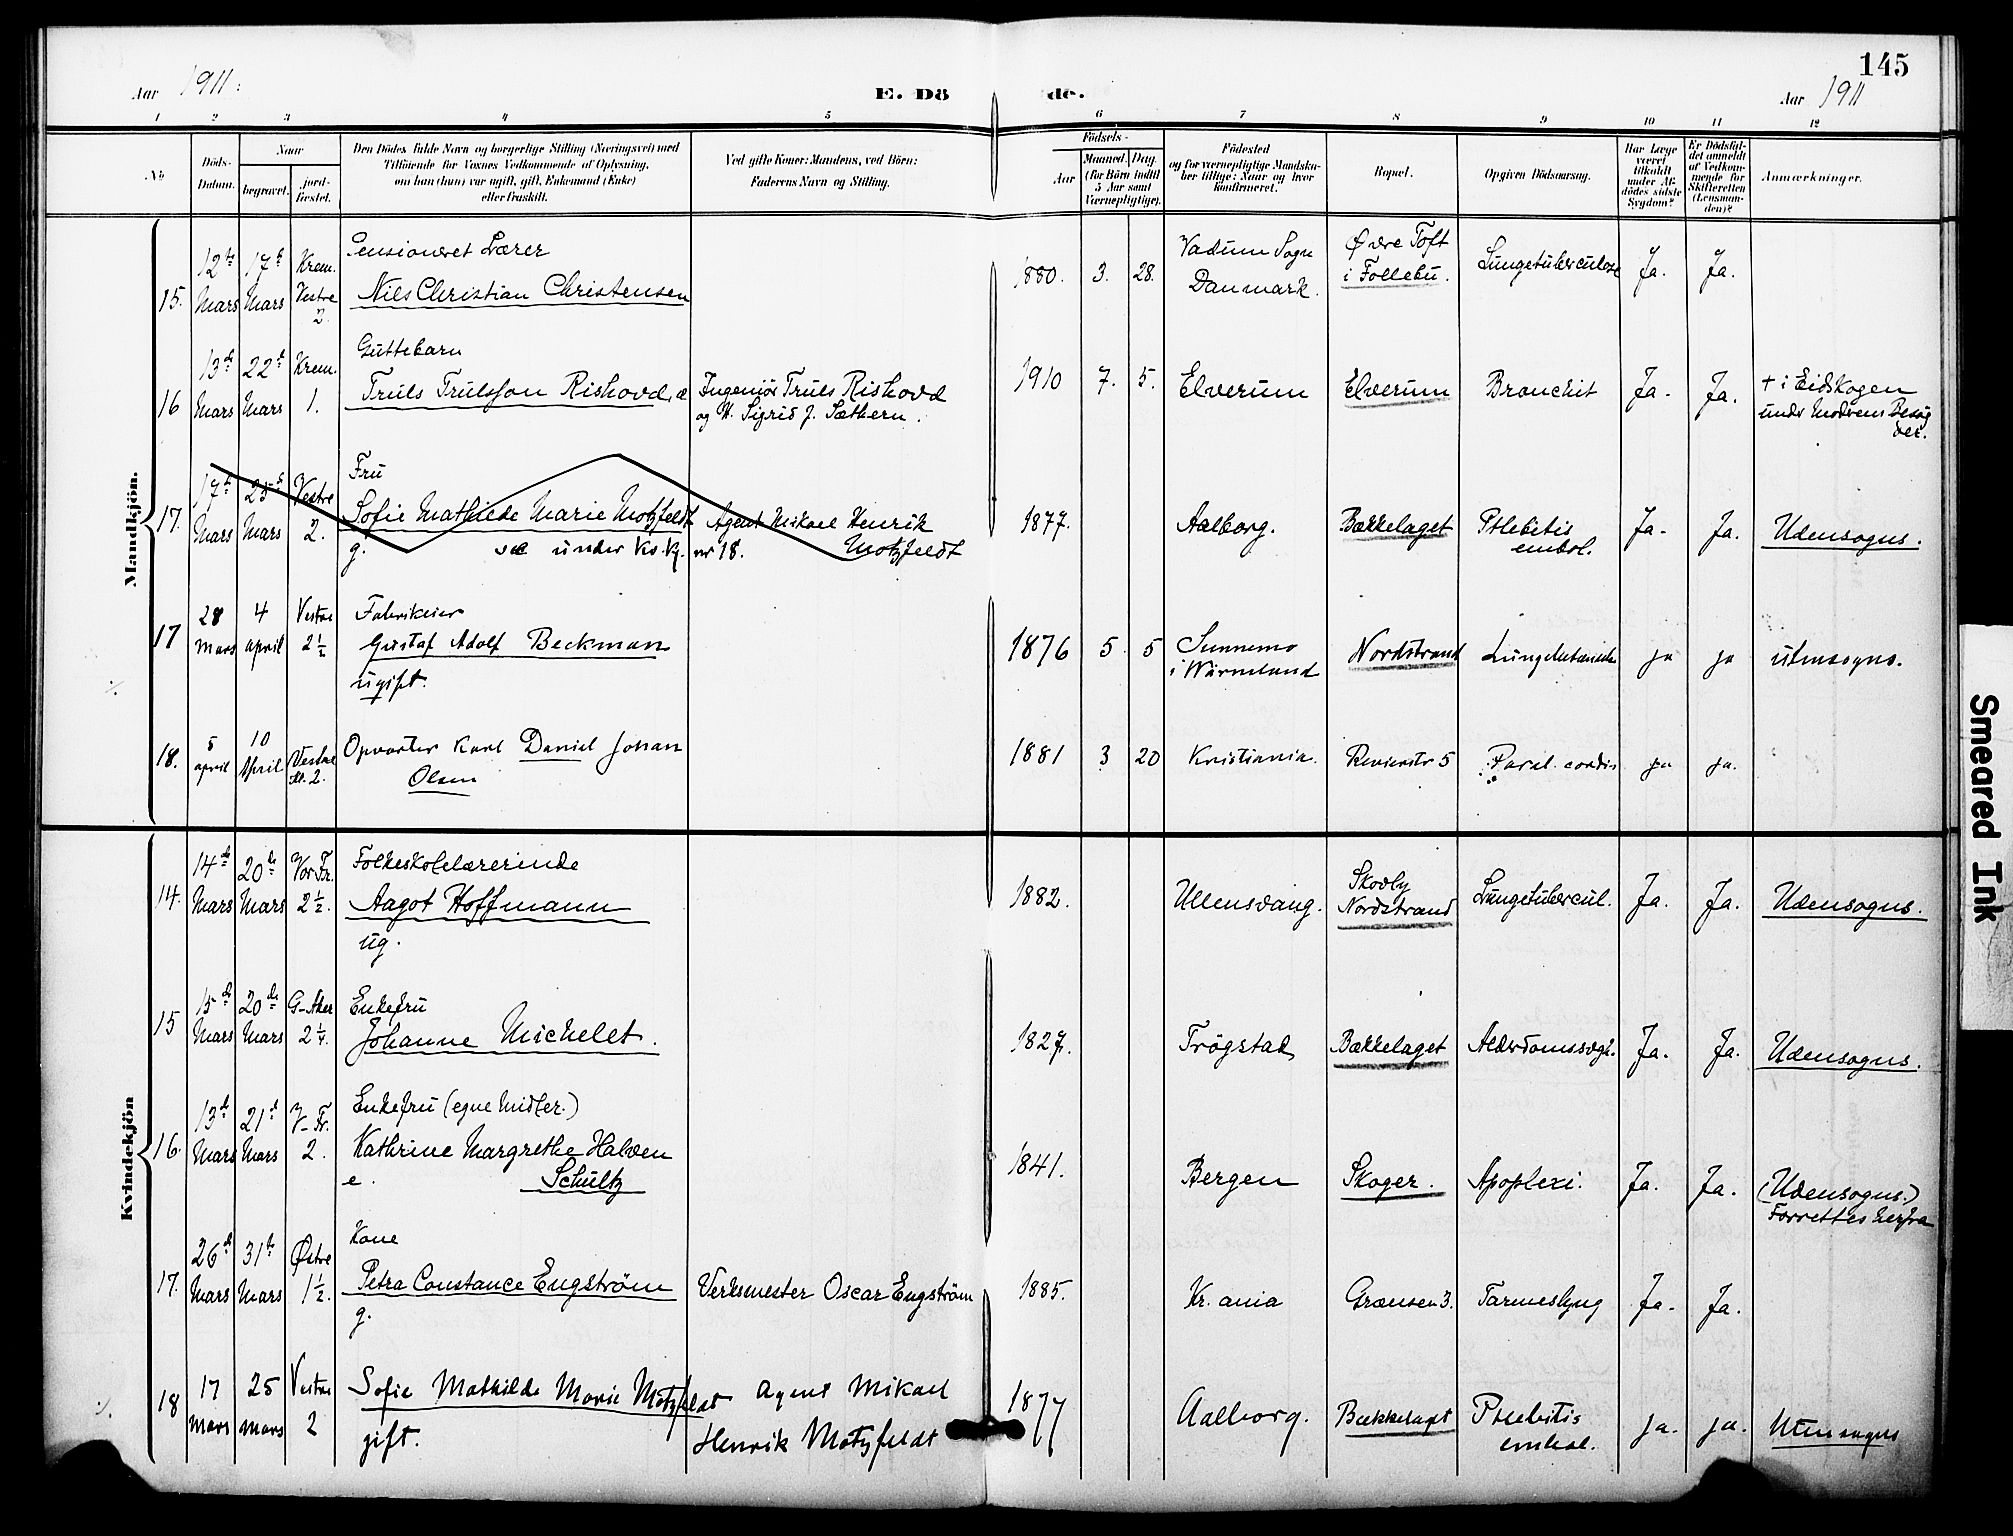 145
Aar 1911.
E. Dö de.
Aar 1911
1 2 3 4 5 6 7 8 9 10 11 12
No
Döds-Datum.
Naar
begravet.
jord-fæstet.
Den Dödes fulde Navn og borgerlige Stilling (Næringsvei) med
Tilföiende for Voxnes Vedkommende af Oplysning,
om han (hun) var ugift, gift, Enkemand (Enke)
eller fraskilt.
Ved gifte Koner: Mandens, ved Börn:
Faderens Navn og Stilling.
Födsels-
Aar
Maaned. Dag.
(for Börn indtil
5 Aar samt
Værnepligtige).
Födested
og for værnepligtige Mandska-
ber tillige: Naar og hvor
konfirmeret.
Bopæl.
Opgiven Dödsaarsag.
Har Læge
været
tilkaldt
under Af-
dödes sidste
Sygdom?
Er Dödsfal-
det anmeldt
af Vedkom-
mende for
Skifteretten
(Lensman-
den)?
Anmærkninger.
Mandkjön.
15. 12te Mars 17de Mars Krem. Vestre 2
Pensioneret Lærer
Nils Christian Christensen
1880. 3. 28. Vadum Sogn Danmark. Øvre Toft i Follebu. Lungetuberculose Ja. Ja.
16 13de Mars 22de Mars Krem. 1.
Guttebarn
Truls Trulsson Rishovd, æ
Ingeniör Truls Rishovd
og H. Sigrid J. Sæthern.
1910 7. 5. Elverum Elverum Bronchit Ja. Ja.
+ i Eidskogen
under Modrens Besøg
der.
17. 17de Mars 25de Mars Vestre 2.
Fru
Sofie Mathilde Marie Motzfeldt
g. se under Kv.kj. nr 18.
Agent Mikael Henrik
Motzfeldt
1877. Aalborg. Bækkelaget Phlebitis embol. Ja. Ja. Udensogns.
17 28 mars 4 april Vestre 2 1/2
Fabrikeier
Gustaf Adolf Beckman
ugift.
1876 5 5 Sunnemo i Wärmland Nordstrand ja ja utensogns.
18. 5 april 10 April Vestre 2.
Opvarter Karl Daniel Johan
Olsen
1881 3 20 Kristiania. Revierstr 5 Paral. cordis ja ja.
Kvindekjön
14. 14de Mars 20de Mars Vor Fr. 2 1/2.
Folkeskolelærerinde
Aagot Hoffmann
ug.
1882. Ullensvang. Skovly Nordstrand Lungetubercul. Ja. Ja. Udensogns.
15 15de Mars 20de Mars G-Aker 2 1/4.
Enkefru
Johanne Michelet.
1827. Trögstad Bækkelaget Alderdomssvagh. Ja. Ja. Udensogns.
16. 13de Mars 21de Mars V-Fr. 2.
Enkefru (egne Midler.)
Kathrine Margrethe Halven
e. Schultz
1841. Bergen Skoger. Apoplexi. Ja. Ja.
(Udensogns.)
Forrettes herfra
17. 26de Mars 31te Mars Østre 1 1/2.
Kone
Petra Constance Engström
g.
Verksmester Oscar Engström
1885. Kr. ania Grænsen 3. Tarmeslyng Ja. Ja.
18 17 mars 25 mars Vestre 2
Sofie Mathilde Marie Motzfeldt
gift.
Agent Mikael
Henrik Motzfeldt
1877 Aalborg. Bækkelaget Phlebitis embol. ja. ja. Utensogns
Smeared Ink